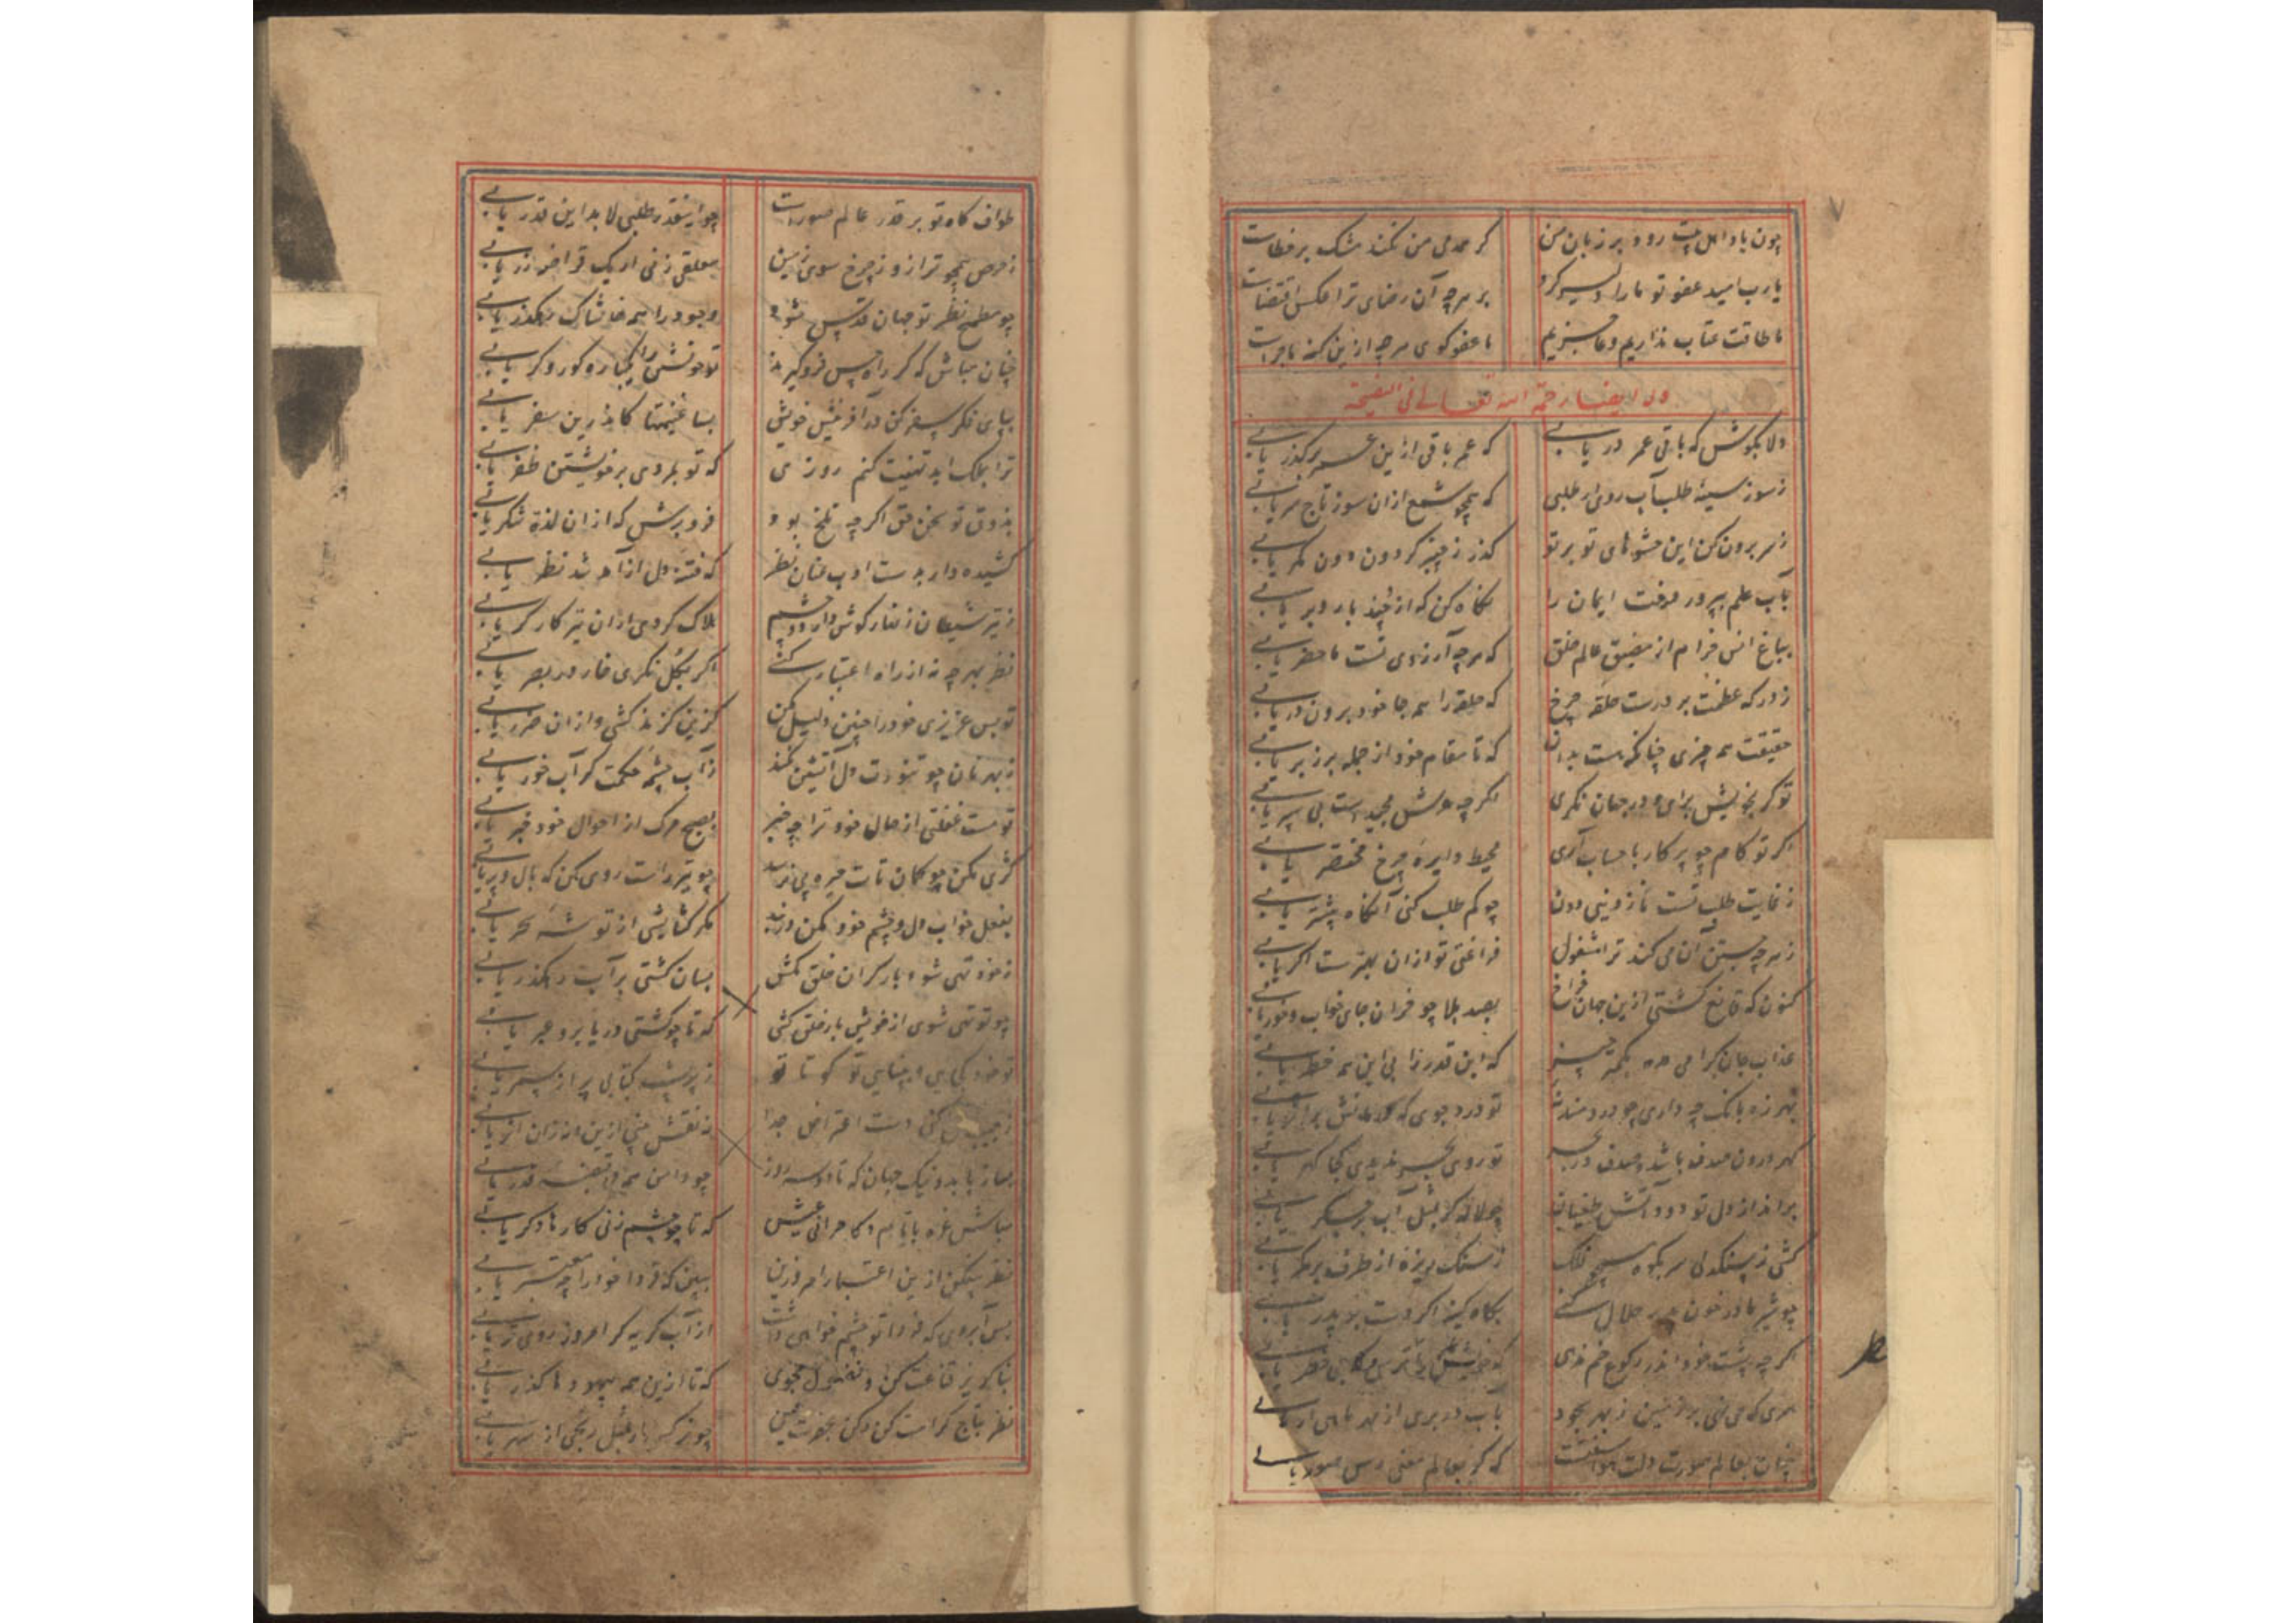 چون یاد اهل بیت رود بر زبان من    گر همدمی من نکند مشک بر خطاست
یارب امید عفو تو ما را دلیر کرد    بر هرچه آن رضای ترا عکس اقتضاست
ما طاقت عتاب نداریم و عاجزیم    با عفو گوی هرچه ازین گنه ماجراست
وله ایضا رحمة الله تعالی فی النصیحة
دلا بکوش که باقی عمر دریابی    که عمر باقی ازین عمر برگذر یابی
ز سوز سینه طلب آب روی ار طلبی    که همچو شمع ازان سوز تاج سر یابی
ز سر برون کن این حشوهای تو بر تو    گذر ز چنبر گردون دون مگر یابی
بآب علم بپرور درخت ایمان را    نگاه کن که از چند بار و بر یابی
بباغ انس خرام از مضیق عالم خلق    که هرچه آرزوی تست ماحضر یابی
ز درگه عظمت بر درست حلقه چرخ    که حلقه را همه جا خود برون در یابی
حقیقت همه چیزی چنانکه هست بدان    که تا مقام خود از جمله برزبر یابی
تو گر بخویش برای و در جهان نگری    اگرچه عرش مجیدست پی سپر یابی
اگر تو کام چو پرکار با حساب آری    محیط دایره چرخ مختصر یابی
ز غایت طلب تست نازونی دون    چو کم طلب کنی آنگاه بیشتر یابی
ز هرچه جستن آن می کند ترا مشغول    فراغتی تو ازان بهترست اگر یابی
کنون که قانع گشتی ازین جهان فراخ    بصد بلا چو خران جای خواب و خور یابی
عذاب جان گرامی مده بهمه چیز    که این قدر زا بی این همه خطر یابی
بهرزه بانگ چه داری چو دردمند نئی    تو درد جوی که درمانش بر اثر یابی
گهر درون صدف باشد و صدف در بحر    تو روی بحر ندیدی کجا گهر یابی
برآمد از دل تو دود آتش طغیان    چو لاله گر بمثل آب بر جگر یابی
کشی ز سنگدلی سر بکوه همچو فلک    ز سنگ ریزه از طرف بر کمر یابی
چو شیر مادر خون پدر حلال کنی    بگاه کینه اگر دست بر پدر یابی
اگرچه پشت خود اندر رکوع خم ندهی
سری که می ننهی بر زمین ز بهر سجود    بآب در بری از بهر ماهی ار یابی
چنان بعالم صورت دلت برآشفتست    که گر بعالم معنی رسی صور یابی
طواف گاه تو بر قدر عالم صورت    چو اینقدر طلبی لابد این قدر یابی
ز حرص همچو ترازو ز چرخ سوی زمین    معلقی زنی ار یک قراضه زر یابی
چو مطمح نظر تو جهان قدس شود    وجود را همه خاشاک رهگذر یابی
چنان مباش که گر راه حس فروگیرند    تو خویشتن را یکباره کور و کر یابی
بپای فکر سفر کن در آفرینش خویش    بسا غنیمتا کاندرین سفر یابی
ترا بملک ابد تهنیت کنم روزی    که تو بمردی بر خویشتن ظفر یابی
بذوق تو سخن حق اگرچه تلخ بود    فرو برش که ازان لذة شکر یابی
کشیده دار بدست ادب عنان نظر    که فتنه دل از آمد شد نظر یابی
ز تیر شیطان زنهار گوش دار دو چشم    هلاک گردی ازان تیر کارگر یابی
نظر بهرچه نه از راه اعتبار کنی    اگر بگل نگری خار در بصر یابی
تو بس عزیزی خود را چنین ذلیل مکن    کزین گزند کشی وز ان ضرر یابی
ز بهر نان چو تنورت دل آتشین نکند    ز آب چشمه حکمت گر آب خور یابی
تو مست غفلتی از حال خود ترا چه خبر    بصبح مرگ از احوال خود خبر یابی
کژی مکن چو کمان تات خیره پی نزنند    چو تیر راست روی کن که بال و پر یابی
بفعل خواب دل و چشم خود مکن در بند    مگر گشایشی از توشه سحر یابی
ز خود تهی شو و بار گران خلق بکش    بسان کشتی بر آبت رهگذر یابی
چو تو تهی شوی از خویش بار خلق کشی    که تا چو کشتی دریا بر و عبر یابی
بساز با بد و نیک جهان که تا دو سه روز    چو دامن همه در قبضه قدر یابی
مباش غره بایام و کامرانی عیش    که تا چو چشم زنی کارها دگر یابی
نظر بیفکن ازین اعتبار امروزین    ببین که فردا خود را چه معتبر یابی
بس آبروی که فردا تو چشم خواهی داشت    از آب گریه گر امروز روی تر یابی
بناگزیر قناعت کن و فضول مجوی    که تا ازین همه بیهوده ها گذر یابی
نظر بتاج کرامت کن و مکن بعضوت عین